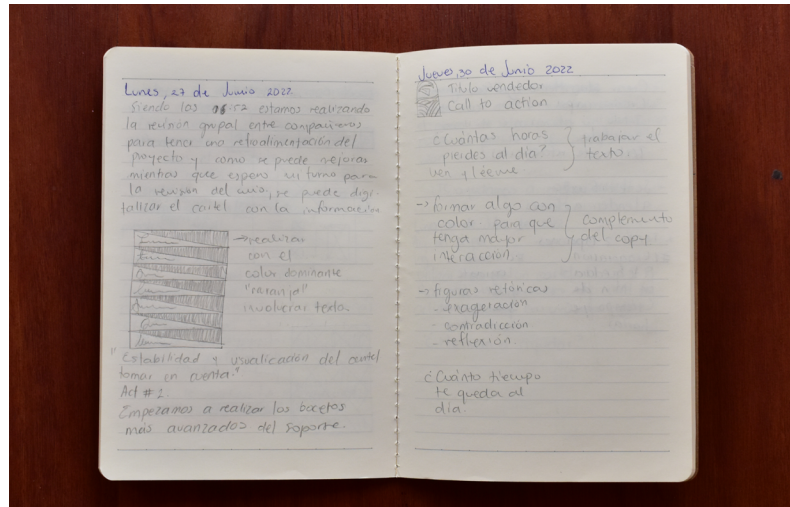 Lunes, 27 de Junio 2022.
Siendo las estamos realizando
la revisión grupal entre compañeros
para tener una retroalimentación del
proyecto y como se puede mejorar
mientras que espero mi turno para
la revisión del se puede digi-
talizar el cartel con la información
→realizar
con el
color dominante
"naranja"
involucrar texto.
"Estabilidad y visualización del cartel
tomar en cuenta."
Act # 2.
Empezamos a realizar los bocetos
más avanzados del soporte.
Jueves, 30 de Junio 2022
Titulo vendedor
Call to action
¿Cuántas horas
pierdes al día?
ven y léeme.
trabajar el
texto.
→ formar algo con
color para que
tenga mayor
interacción.
complemento
del copy
→ figuras retóricas
- exageración
- contradicción
- reflexión.
¿Cuánto tiempo
te queda al
día.